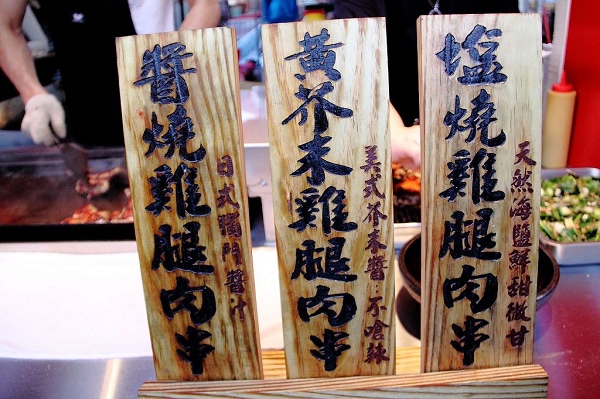 醬燒雞腿肉串
日式獨門醬汁
黃芥末雞腿肉串
美式芥末醬．不嗆辣
塩燒雞腿肉串
天然海鹽鮮甜微甘